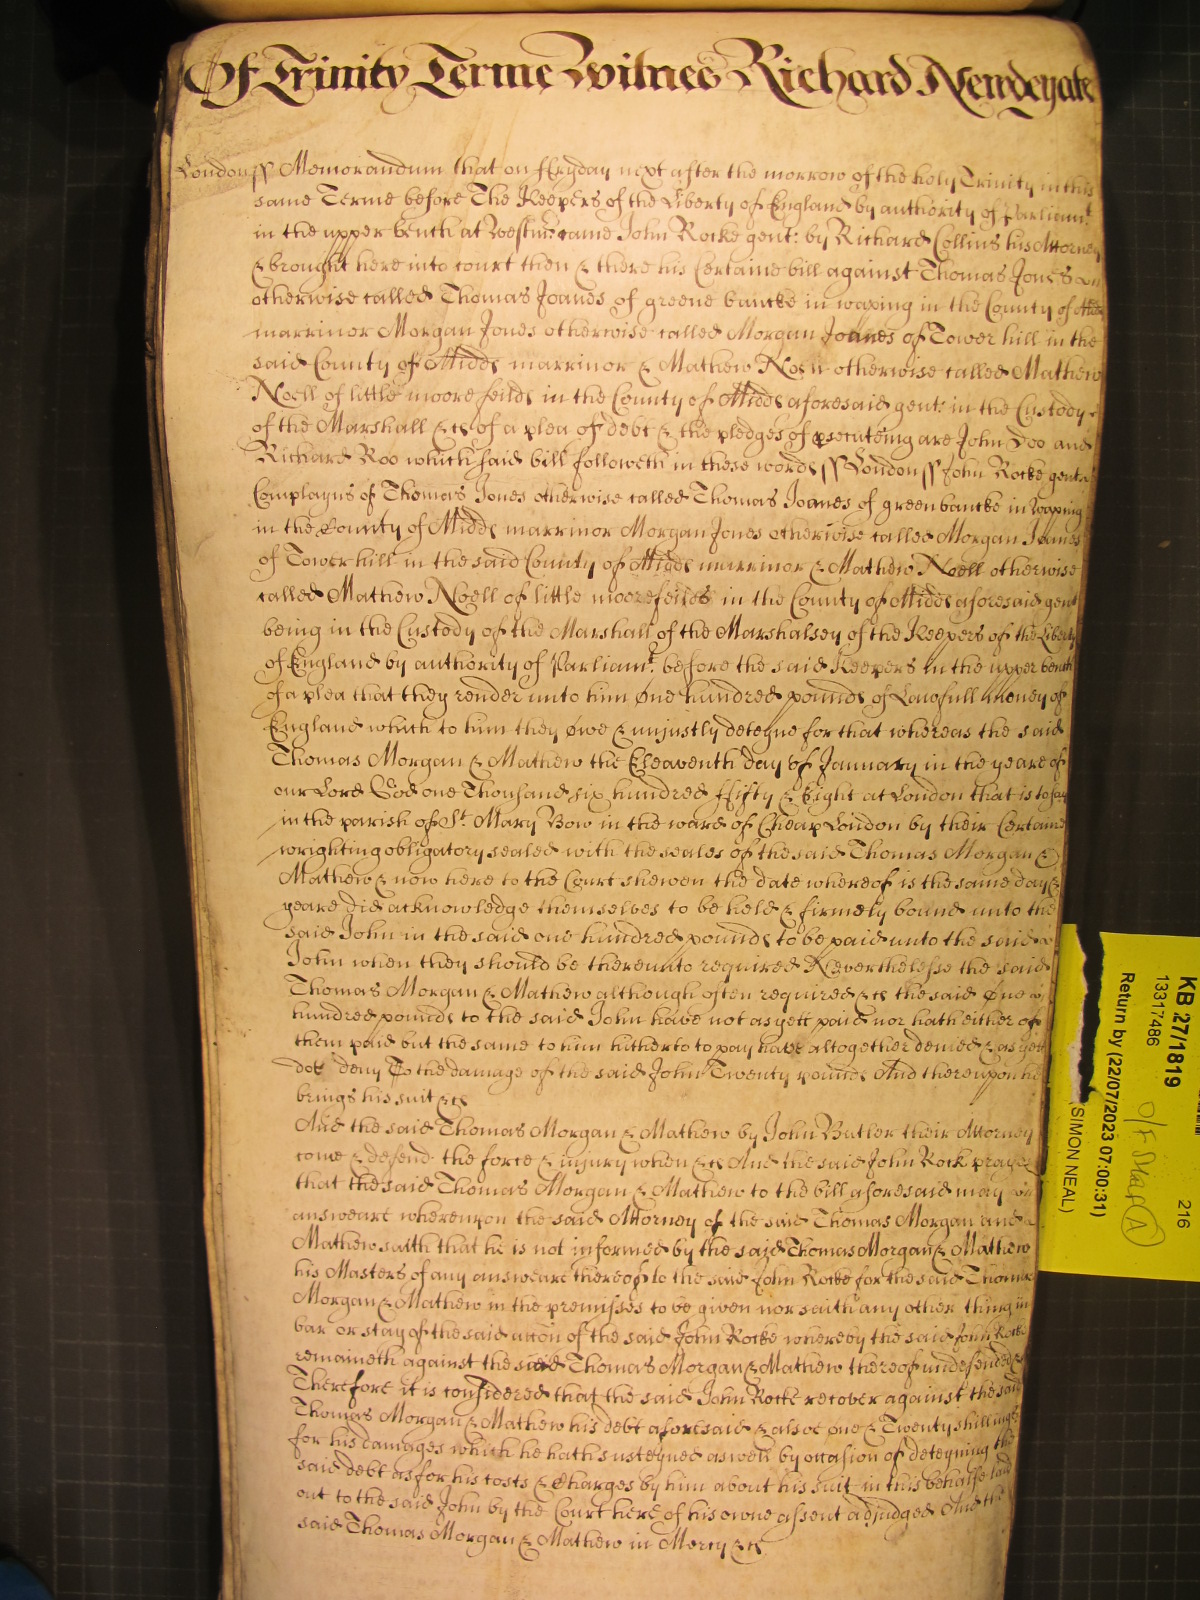 Of Trinity Terme Witnes Richard Newdegate
London ss Memorandum that on ffryday next after the morrow of the holy Trinity in this
same Terme before The Keepers of the Liberty of England by authority of Parliamt.
in the upper bench at Westmr came John Rocke gent: by Richard Collins his Attorney
& brought here into court then & there his Certaine bill against Thomas Jones
otherwise called Thomas Joanes of greene bancke in waping in the County of Midds
marrinor Morgan Jones otherwise called Morgan Joanes of Tower hill in the
said County of Midds marrinor & Mathew Noell otherwise called Mathew
Noell of little moore feilds in the County of Midds aforesaid gent: in the Custody
of the Marshall &c of a plea of debt & the pledges of psecuteing are John Doo and
Richard Roo which said bill followeth in these words ss London ss John Rocke gent:
Complayns of Thomas Jones otherwise called Thomas Joanes of greenbancke in Waping
in the County of Midds marrinor Morgan Jones otherwise called Morgan Joanes
of Tower hill in the said County of Midds marrinor & Mathew Noell otherwise
called Mathew Noell of little moorefeilds in the County of Midds aforesaid gent
being in the Custody of the Marshall of the Marshalsey of the Keepers of the Liberty
of England by authority of Parliamt. before the said Keepers in the upper bench
of a plea that they render unto him One hundred pounds of Lawfull money of
England which to him they owe & unjustly deteyne for that whereas the said
Thomas Morgan & Mathew the Eleaventh day of January in the yeare of
our Lord God one Thousand six hundred ffifty & Eight at London that is to say
in the parish of St. Mary Bow in the ward of Cheap London by their Certaine
wrighting obligatory sealed with the seales of the said Thomas Morgan &
Mathew & now here to the Court shewen the date whereof is the same day &
yeare did acknowledge themselves to be held & firmely bound unto the
said John in the said one hundred pounds to be paid unto the said
John when they should be thereunto required Neverthelesse the said
Thomas Morgan & Mathew although often required &c the said One
hundred pounds to the said John have not as yett paid nor hath either of
them paid but the same to him hitherto to pay have altogether denied & as yet
doe deny To the damage of the said John Twenty pounds And thereupon he
brings his suit &c
And the said Thomas Morgan & Mathew by John Butler their Attorney
come & defend the force & injury when &c And the said John Rock prayes
that the said Thomas Morgan & Mathew to the bill aforesaid may
answeare whereupon the said Attorney of the said Thomas Morgan and
Mathew saith that he is not informed by the said Thomas Morgan & Mathew
his Masters of any answeare thereof to the said John Rocke for the said Thomas
Morgan & Mathew in the premisses to be given nor saith any other thing in
bar or stay of the said accon of the said John Rocke whereby the said John Rocke
remaineth against the said Thomas Morgan & Mathew thereof undefended &c
Therefore it is considered that the said John Rocke recover against the said
Thomas Morgan & Mathew his debt aforesaid & alsoe one & Twenty shillings
for his damages which he hath susteyned aswell by occasion of deteyning the
said debt as for his costs & Charges by him about his suit in this behalfe laid
out to the said John by the Court here of his owne assent adjudged And the
said Thomas Morgan & Mathew in Mercy &c
KB 27/1819
13317486
Return by (22/07/2023 07:00:31)
(SIMON NEAL)
216
A